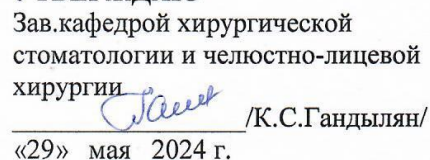 Зав.кафедрой хирургической
стоматологии и челюстно-лицевой
хирургии
/К.С.Гандылян/
«29» мая 2024 г.